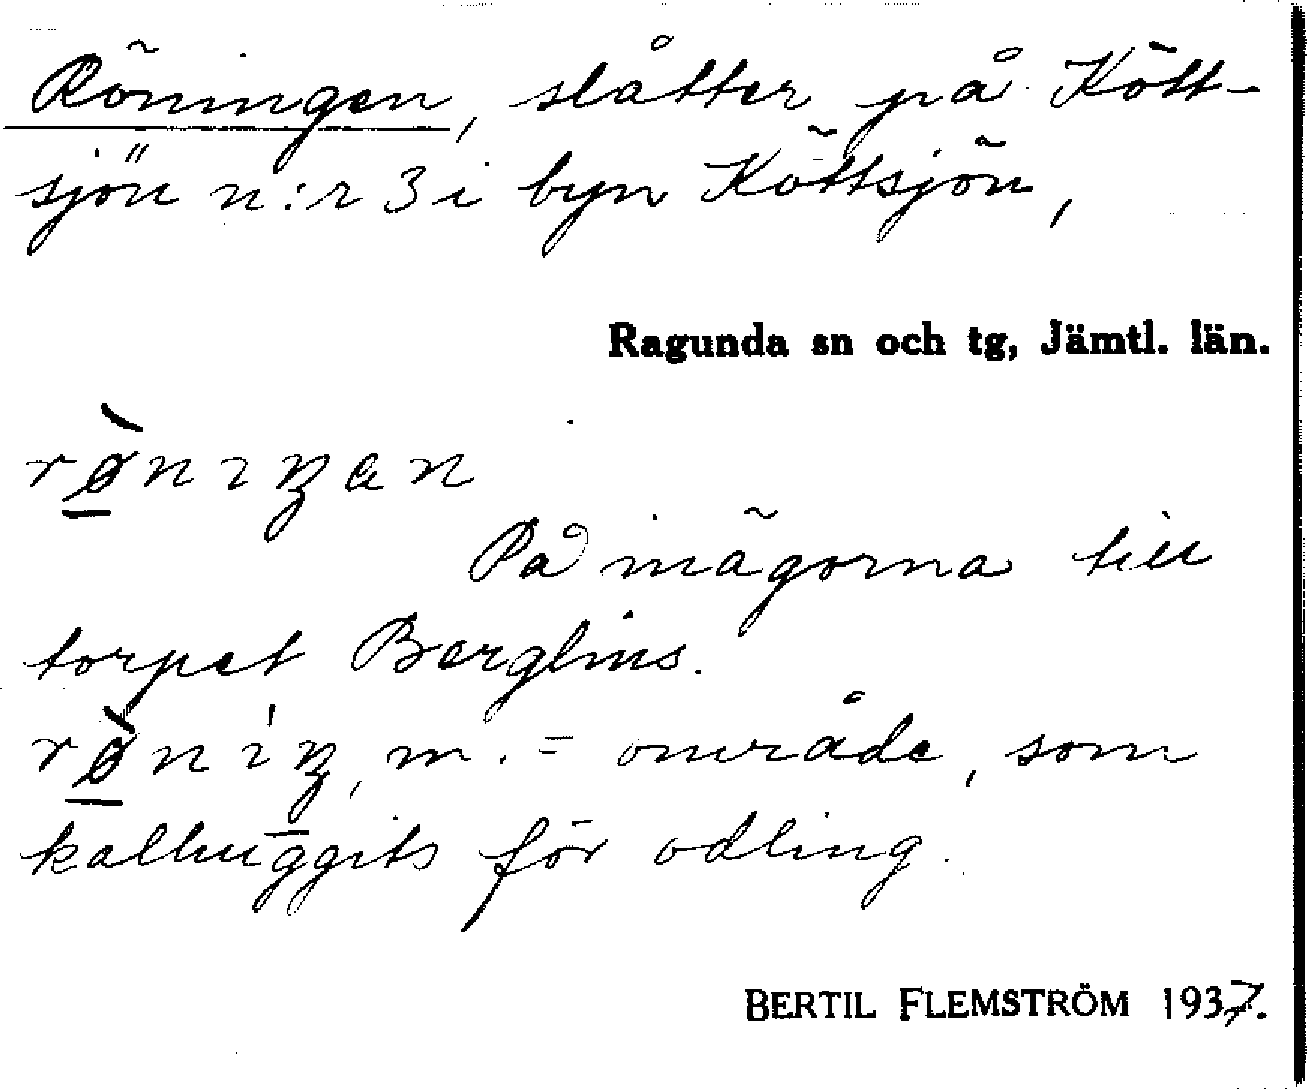 Röningen, slåtter på Kött-
sjön n:r 3 i byn Köttsjön,
Ragunda sn och tg, Jämtl. län.
rø̱̀nıŋan
På inägorna till
torpet Berglins.
rø̱̀nıŋ, m. = område, som
kalhuggits för odling.
BERTIL FLEMSTRÖM 1937.